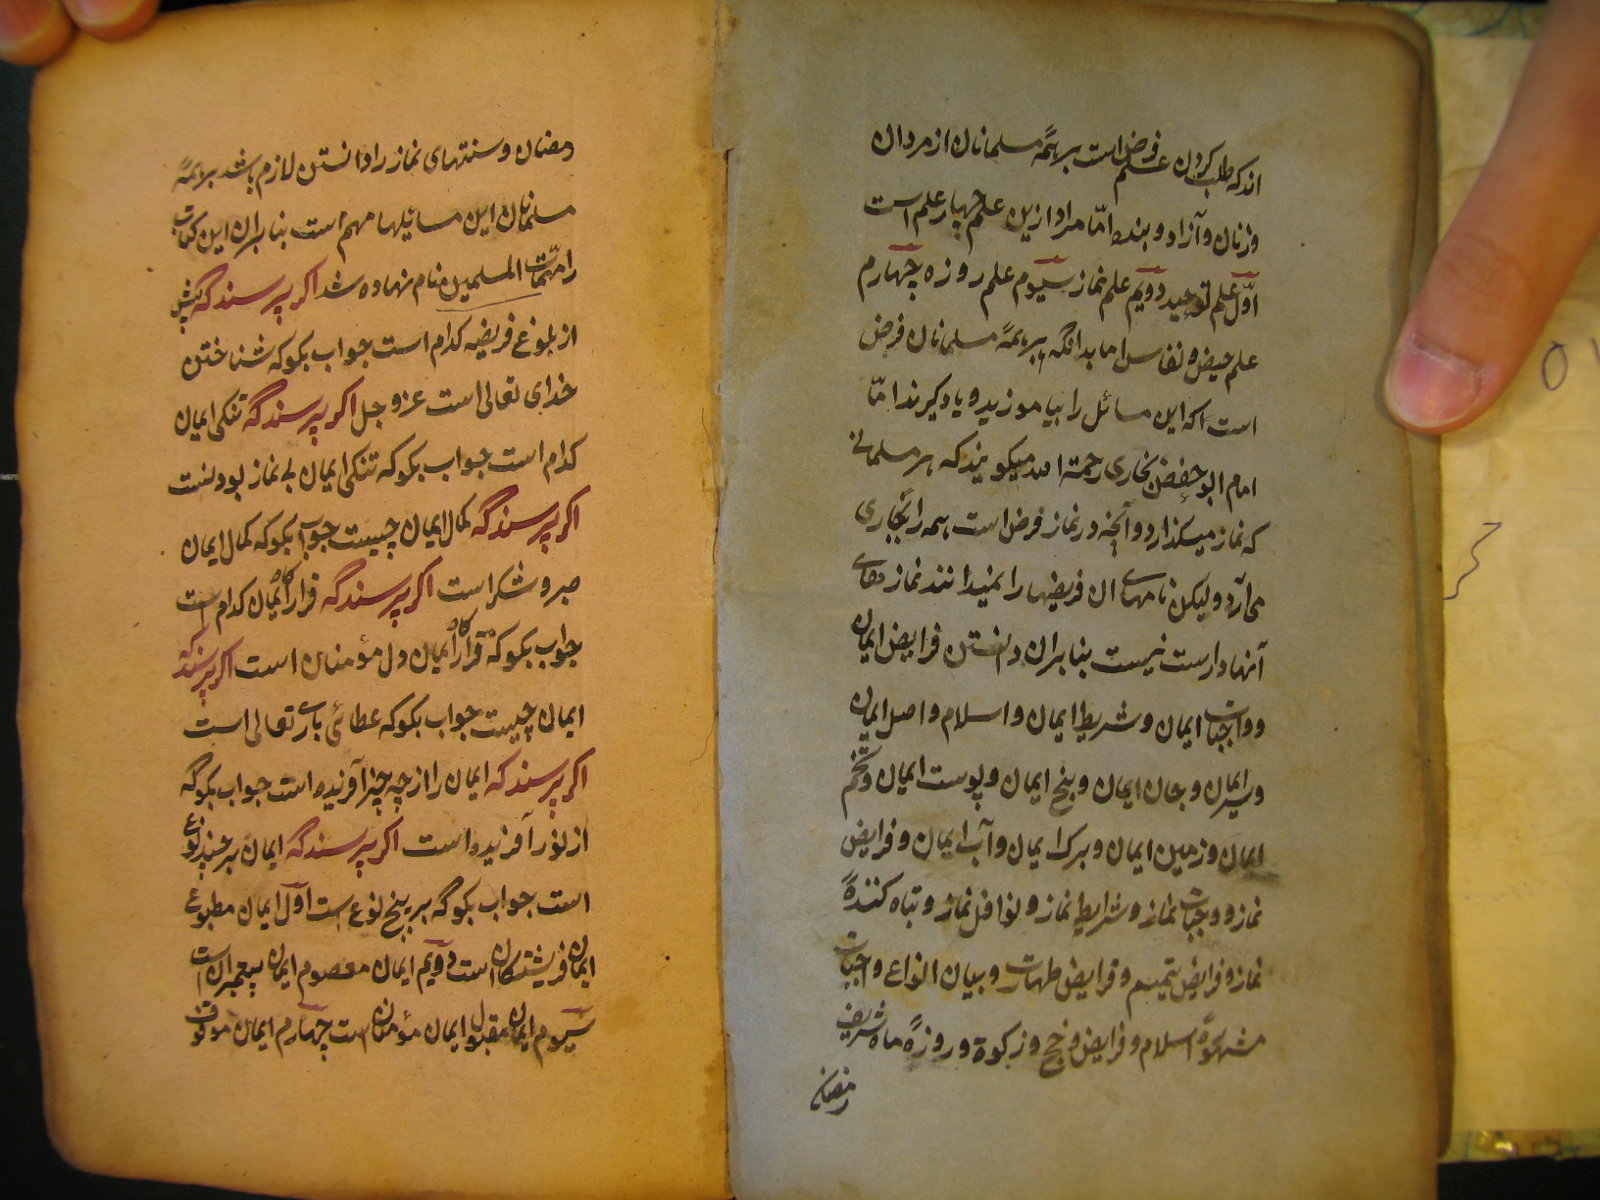 اند که طلب کردن علم فرض است بر همهٔ مسلمانان از مردان
وزنان و آزاد و بنده امّا مراد ازین علم چهار علم است
اوّل علم توحید دویّم علم نماز سیّوم علم روزه چهارم
علم حیض و نفاس اما بدانکه بر همهٔ مسلمانان فرض
است که این مسائل را بیاموزید و یاد کیرند امّا
امام ابو حفص بخاری رحمة الله میکویند که هر مسلمانے
که نماز میکذارد و آنچه در نماز فرض است همه را بجاری
می آرد ولیکن نامهاے ان فریضها را نمیدانند نمازهاے
آنها دارست نیست بنا بران دانستن فرایض ایمان
و واجبات ایمان و شریط ایمان و اسلام و اصل ایمان
وسر ایمان و جان ایمان و بیخ ایمان و پوست ایمان و تخم
ایمان و زمین ایمان و برک ایمان و آب ایمان و فرایض
نماز و وجبات نماز و شرایط نماز و نوافل نماز و تباه کنندهٔ
نماز و فرایض تیمم و فرایض طهات و بیان انواع واجبات
مشهوهٔ اسلام و فرایض و حج و زکوة و روزهٔ ماه شریف
رمضان
رمضان و سنتهای نماز را دانستن لازم باشد بر همهٔ
مسلمانان این مسائیلها مهم است بنا بران این کتاب
را مهمّات المسلمین نام نهاده شد اکر پرسند که پیش
از بلوغ فریضه کدام است جواب بکو که شناختن
خدای تعالی است عزو جل اکر پرسند که تنکی ایمان
کدام است جواب بکو که تنکی ایمان بے نماز بودنست
اکر پرسند که کمال ایمان چیست جواب بکو که کمال ایمان
صبر و شکر است اکر پرسند که قرار کاه ایمان کدام است
جواب بکو که قرار کاه ایمان دل مؤمنان است اکر پرسند که
ایمان چیست جواب بکو که عطائی باری تعالی است
اکر پرسند که ایمان را از چه چیز آفریده است جواب بکو که
از نور آفریده است اکر پرسند که ایمان بر چند نوع
است جواب بکو که بر پنج نوع است اوّل ایمان مطبوع
ایمان فریشتکان است دویّم ایمان معصوم ایمان پیغمبران است
سیّوم ایمان مقبول ایمان مؤمنان است چهارم ایمان موقوف